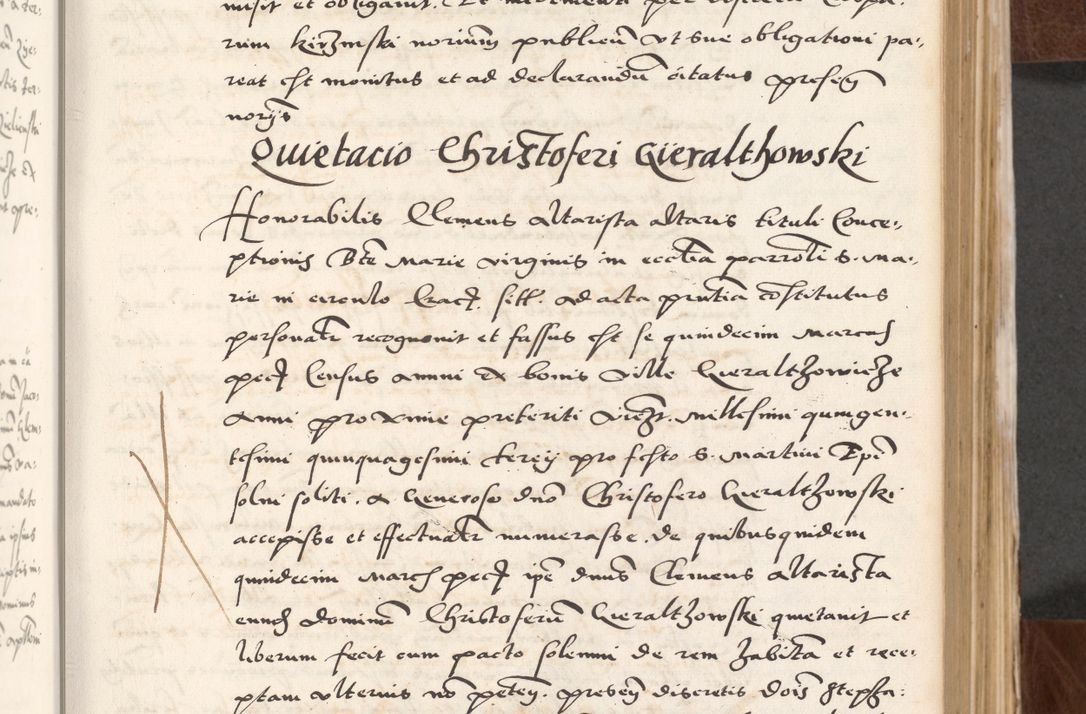 rum kirzinski norium publicu ut sue obligationi pa-
reat est monitus et ad declarandu citatus presen
norys
Quietacio Christoferi Gieralthowski
Honorabilis Clemens altarista altaris tituli Conce-
ptionis Bte Marie virginis in ecctia parroli S. Ma-
rie in circulo Crac. sill. ad acta pntia constitutus
personatr recognovit et fassus est se quindecim marcas
pec census anni ex bonis ville Gieralthowicze
anni proxime preteriti viczt. millesimi quingen-
tesimi quinquagesimi tercy pro festo S. Martini Epi
solvi soliti. a Generoso dno Christofero Gieralthowski
accepisse et effectuatr numerasse. de quibusquidem
quindecim march pec ipe dnus Clemens altarista
eundem dominum Christoferu Gieralthowski quietavit et
liberum fecit cum pacto solenni de rem habita et rece-
ptam ulterius no peten. presen discretis dois Stepha-